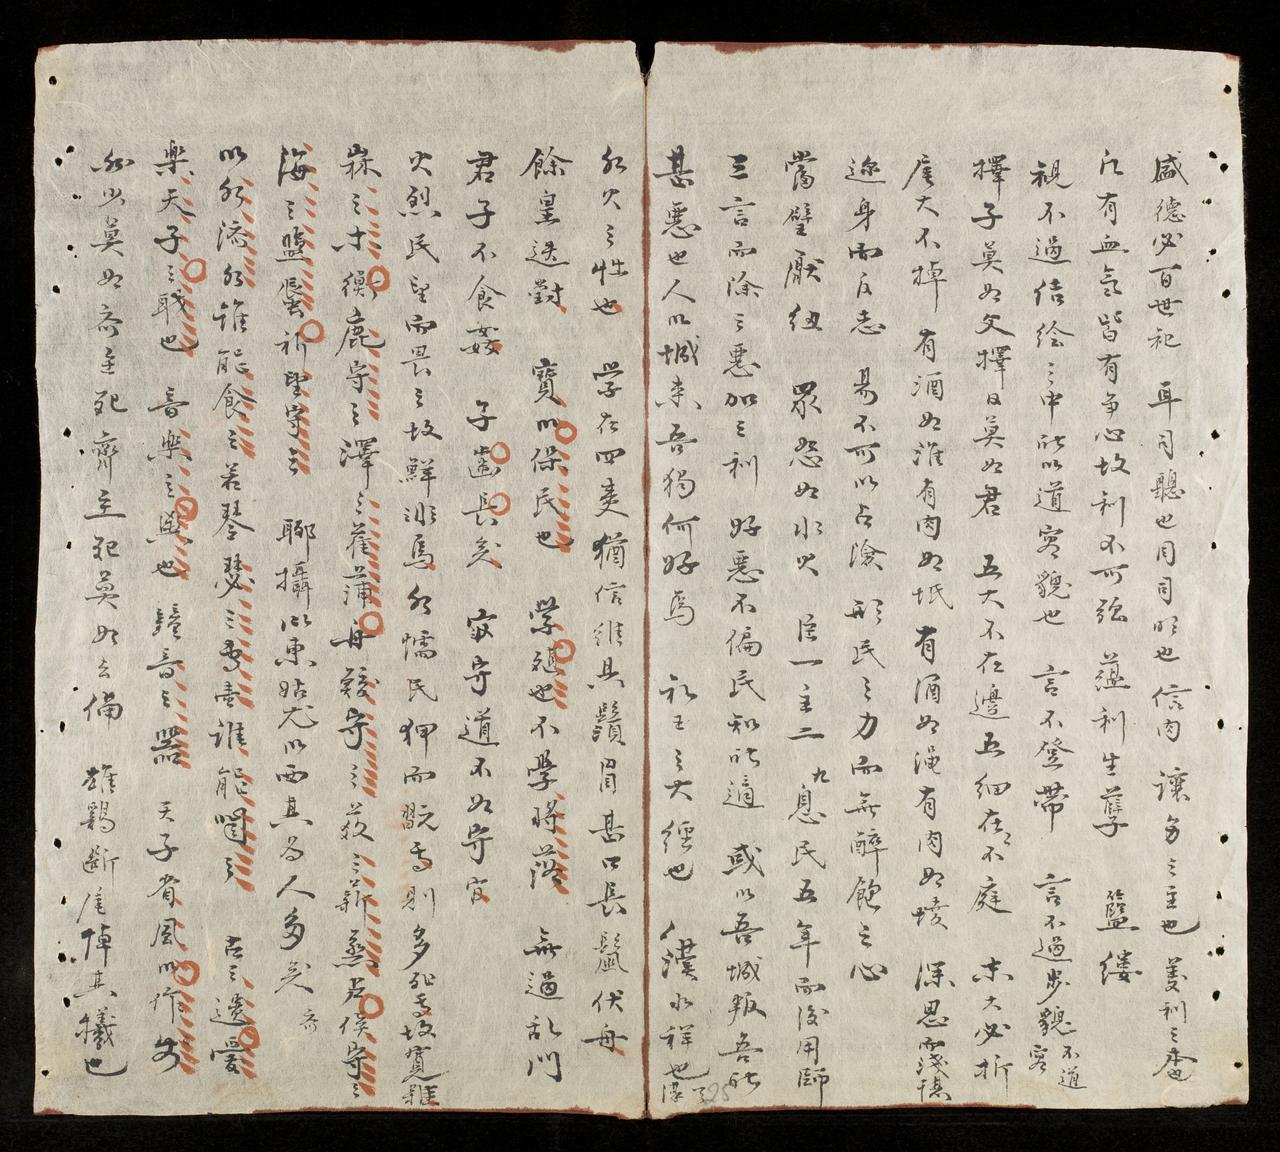 盛德必百世祀 耳司聽也目司明也 信内 讓身之主也 義利之本也
凡有血氣皆有爭心故利不可强 蕰利生孽 籃縷
視不過结絵之中所以道容貌也 言不登帶 言不過步貌不道容
擇子莫如父擇臣莫如君 五大不在邊五細在不庭 末大必折
尾大不掉 有酒如淮有肉如坻 有酒如澠有肉如陵 深思而淺謀
迩身而反志 易不可以占險 形民之力而無醉飽之心
當璧厭紐 衆怨如水火 臣一主二 息民五年而後用師
三言而除三惡加三利 好惡不偏民知所適 或以吾城叛吾所
甚惡也人以城来吾獨何好焉 礼王之大經也 僕水祥也
水火之性也 學在四夷猶信 維其鬚眉甚口 長鬣伏舟
餘皇迭對 寶以保民也 學殖也不學將落 無過乱門
君子不食姦 子齒長矣 守道不如守官
火烈民望而畏之故鮮死焉水懦民狎而翫焉則多死焉故寬難
之木衡鹿守之澤之萑蒲舟鮫守之薮之薪蒸虞侯守之
海之塩蜃祈望守之 聊攝以東姑尤以西其為人多矣 齐
以水济水谁能食之若琴瑟之專壹谁能聞之 古之遗爱
樂天子之職也 音樂之輿也 鐘音之器 天子省風以作
和少莫如齐主死齊主死莫如去備 雄鷄断尾惮其犧也